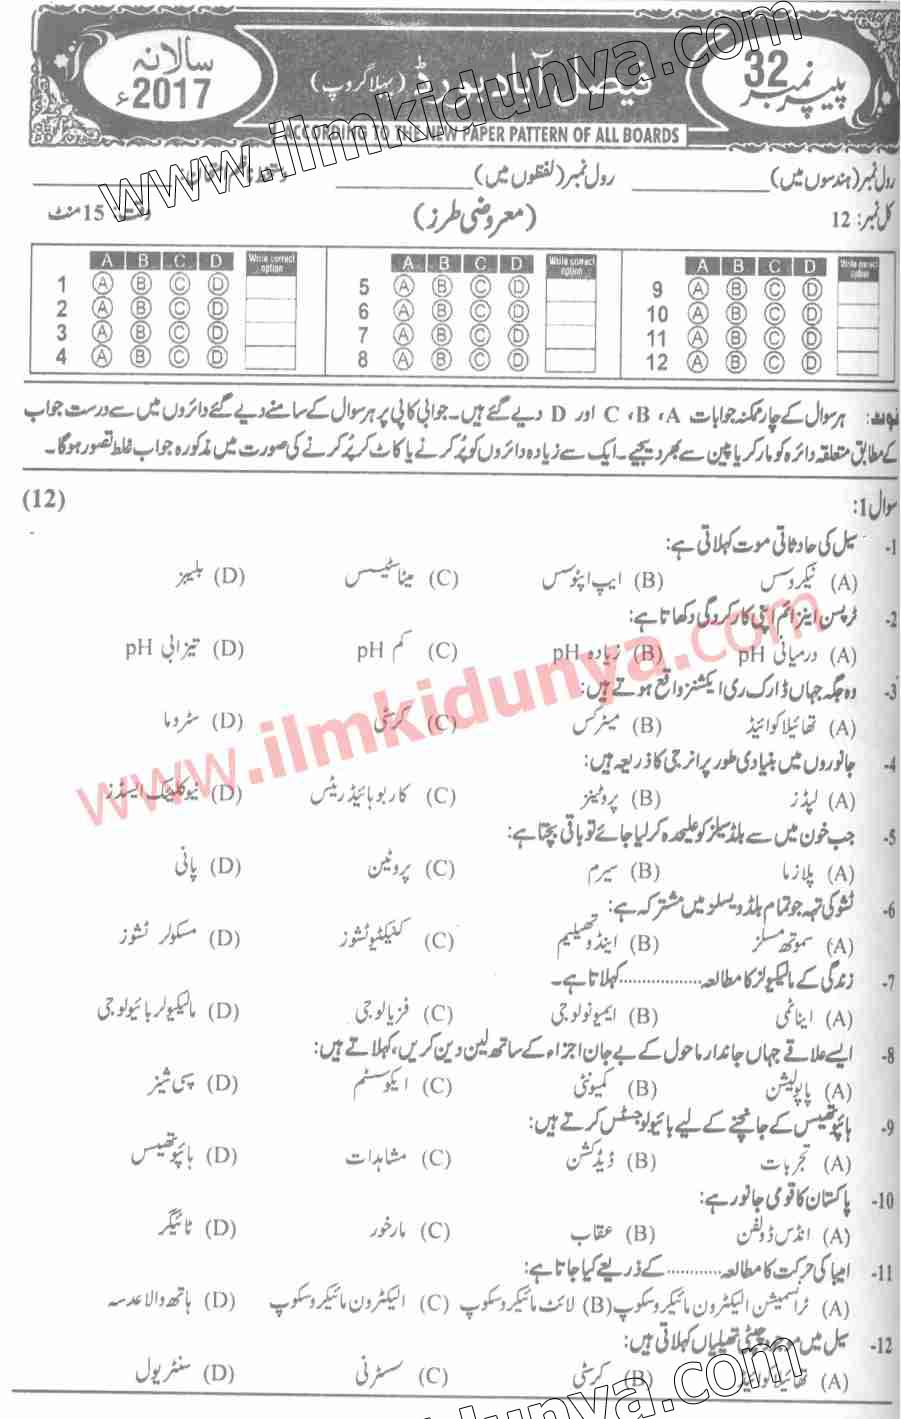 سالانہ 2017ء
فیصل آباد بورڈ (پہلا گروپ)
پیپر نمبر 32
ACCORDING TO THE NEW PAPER PATTERN OF ALL BOARDS
رول نمبر (ہندسوں میں) __________ رول نمبر (لفظوں میں) __________
کل نمبر: 12 (معروضی طرز) وقت: 15 منٹ
A B C D Write correct option A B C D Write correct option A B C D Write correct option
1 A B C D 5 A B C D 9 A B C D
2 A B C D 6 A B C D 10 A B C D
3 A B C D 7 A B C D 11 A B C D
4 A B C D 8 A B C D 12 A B C D
نوٹ: ہر سوال کے چار ممکنہ جوابات A، B، C اور D دیے گئے ہیں۔ جوابی کاپی پر ہر سوال کے سامنے دیے گئے دائروں میں سے درست جواب
کے مطابق متعلقہ دائرہ کو مارکر یا پین سے بھر دیجیے۔ ایک سے زیادہ دائروں کو پُر کرنے یا کاٹ کر پُر کرنے کی صورت میں مذکورہ جواب غلط تصور ہوگا۔
سوال 1: (12)
1- سیل کی حادثاتی موت کہلاتی ہے:
(A) نیکروسس (B) ایپ اپٹوسس (C) میٹاسٹیسس (D) بلیبز
2- ٹرپسن اینزائم اپنی کارکردگی دکھاتا ہے:
(A) درمیانی pH (B) زیادہ pH (C) کم pH (D) تیزابی pH
3- وہ جگہ جہاں ڈارک ری ایکشنز واقع ہوتے ہیں:
(A) تھائیلا کوائیڈ (B) میٹرکس (C) کرسٹی (D) سٹروما
4- جانوروں میں بنیادی طور پر انرجی کا ذریعہ ہیں:
(A) لپڈز (B) پروٹینز (C) کاربوہائیڈریٹس (D) نیوکلیئک ایسڈز
5- جب خون میں سے بلڈ سیلز کو علیحدہ کر لیا جائے تو باقی بچتا ہے:
(A) پلازما (B) سیرم (C) پروٹین (D) پانی
6- ٹشو کی تہہ جو تمام بلڈ ویسلز میں مشترکہ ہے:
(A) سموتھ مسلز (B) اینڈوتھیلیم (C) کنیکٹیو ٹشوز (D) مسکولر ٹشوز
7- زندگی کے مالیکیولز کا مطالعہ .................. کہلاتا ہے۔
(A) اناٹمی (B) ایمیونولوجی (C) فزیالوجی (D) مالیکیولر بائیولوجی
8- ایسے علاقے جہاں جاندار ماحول کے بے جان اجزاء کے ساتھ لین دین کریں، کہلاتے ہیں:
(A) پاپولیشن (B) کمیونٹی (C) ایکوسسٹم (D) سپی شیز
9- ہائپوتھیسس کے جانچنے کے لیے بائیولوجسٹس کرتے ہیں:
(A) تجربات (B) ڈیڈکشن (C) مشاہدات (D) ہائپوتھیسس
10- پاکستان کا قومی جانور ہے:
(A) انڈس ڈولفن (B) عقاب (C) مارخور (D) ٹائیگر
11- امیبا کی حرکت کا مطالعہ ............ کے ذریعے کیا جاتا ہے:
(A) ٹرانسمیشن الیکٹرون مائیکروسکوپ (B) لائٹ مائیکروسکوپ (C) الیکٹرون مائیکروسکوپ (D) ہاتھ والا عدسہ
12- سیل میں موجود چپٹی تھیلیاں کہلاتی ہیں:
(A) تھائیلا کوائیڈ (B) کرسٹی (C) سسٹرنی (D) سنٹریول
www.ilmkidunya.com
www.ilmkidunya.com